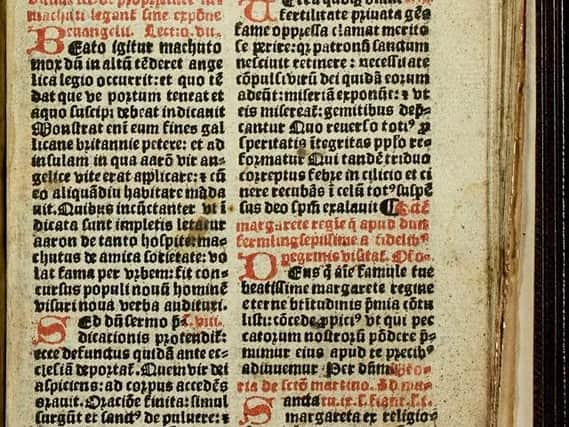 machuti legant sine expone
euangelii. Lectio. vii.
BEato igitur machuto
mox dū in altū tēderet ange
lica legio occurrit: et quo tē
dat que ve portum teneat et
aquo suscipi debeat indicauit
Monstrat eni eum fines gal
licane britannie petere: et ad
insulam in qua aarō vir an-
gelice vite erat applicare: ⁊ cū
eo aliquādiu habitare māda
uit. Quibus incūctanter vt ī
dicata sunt impletis letatur
aaron de tanto hospite: ma-
chutus de amica societate: vo
lat fama per vrbem: fit con-
cursus populi nouū hominē
visuri noua verba audituri.
SEd dū sermo p̄- viii.
dicationis protendit᷑:
ecce defunctus quidā ante ec-
clesiā deportat᷑. Quem vir dei
aspiciens: ad corpus accedēs
orauit. Oratiōe finita: simul
surgūt et sanctꝰ de puluere: ⁊
fertilitate priuata gēs
fame oppressa clamat merito
se perire: qꝛ patronū sanctum
nesciuit retinere: necessitate
cōpulsi virū dei quidā eorum
adeūt: miseriā exponūt: ⁊ vt
eis misereat᷑: gemitibus dep̄-
cantur Quo reuerso totiꝰ ꝓ
speritatis ītegritas ppl̄o re-
formatur Qui tandē triduo
correptus febre in cilicio et ci
nere recubās ī celū totꝰ suspē
sus deo spm̄ exalauit
margarete regīe ꝗ apud dun
fermling sepissime a fidelibꝰ
peregrinis visitat᷑. Oro.
DEus ꝗ aīe famule tue
beatissime margarete regine
eterne btītudinis p̄mia cōtu
listi: cōcede ꝓpiciꝰ vt qui pec
catorum nostrorū pōdere p̄-
mimur eius apud te precibꝰ
adiuuemur Per dn̄m
ria de scto martino. Ad ma-
Sancta
margareta ex religio-